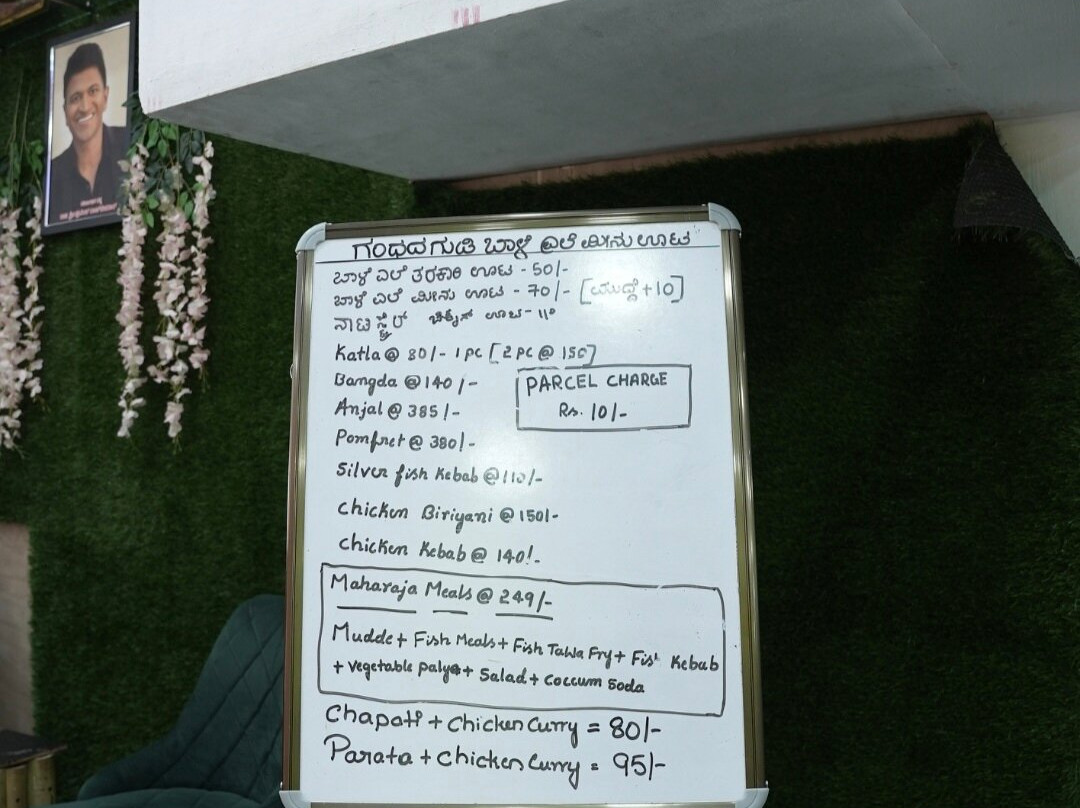 ಗಂಧದಗುಡಿ ಬಾಳೆ ಎಲೆ ಮೀನು ಊಟ
ಬಾಳೆ ಎಲೆ ತರಕಾರಿ ಊಟ - 50/-
ಬಾಳೆ ಎಲೆ ಮೀನು ಊಟ - 70/- [ಮುದ್ದೆ +10]
ನಾಟಿ ಸ್ಟೈಲ್ ಚಿಕ್ಕನ್ ಊಟ - 110
Katla @ 80/- 1 pc [2 pc @ 150]
Bangda @ 140/-
Anjal @ 385/-
Pomfret @ 380/-
PARCEL CHARGE
Rs. 10/-
Silver fish Kebab @ 110/-
Chicken Biriyani @ 150/-
Chicken Kebab @ 140/-
Maharaja Meals @ 249/-
Mudde + Fish Meals + Fish Tawa Fry + Fish Kebab
+ Vegetable palya + Salad + Coccum Soda
Chapati + Chicken Curry = 80/-
Parata + Chicken Curry = 95/-